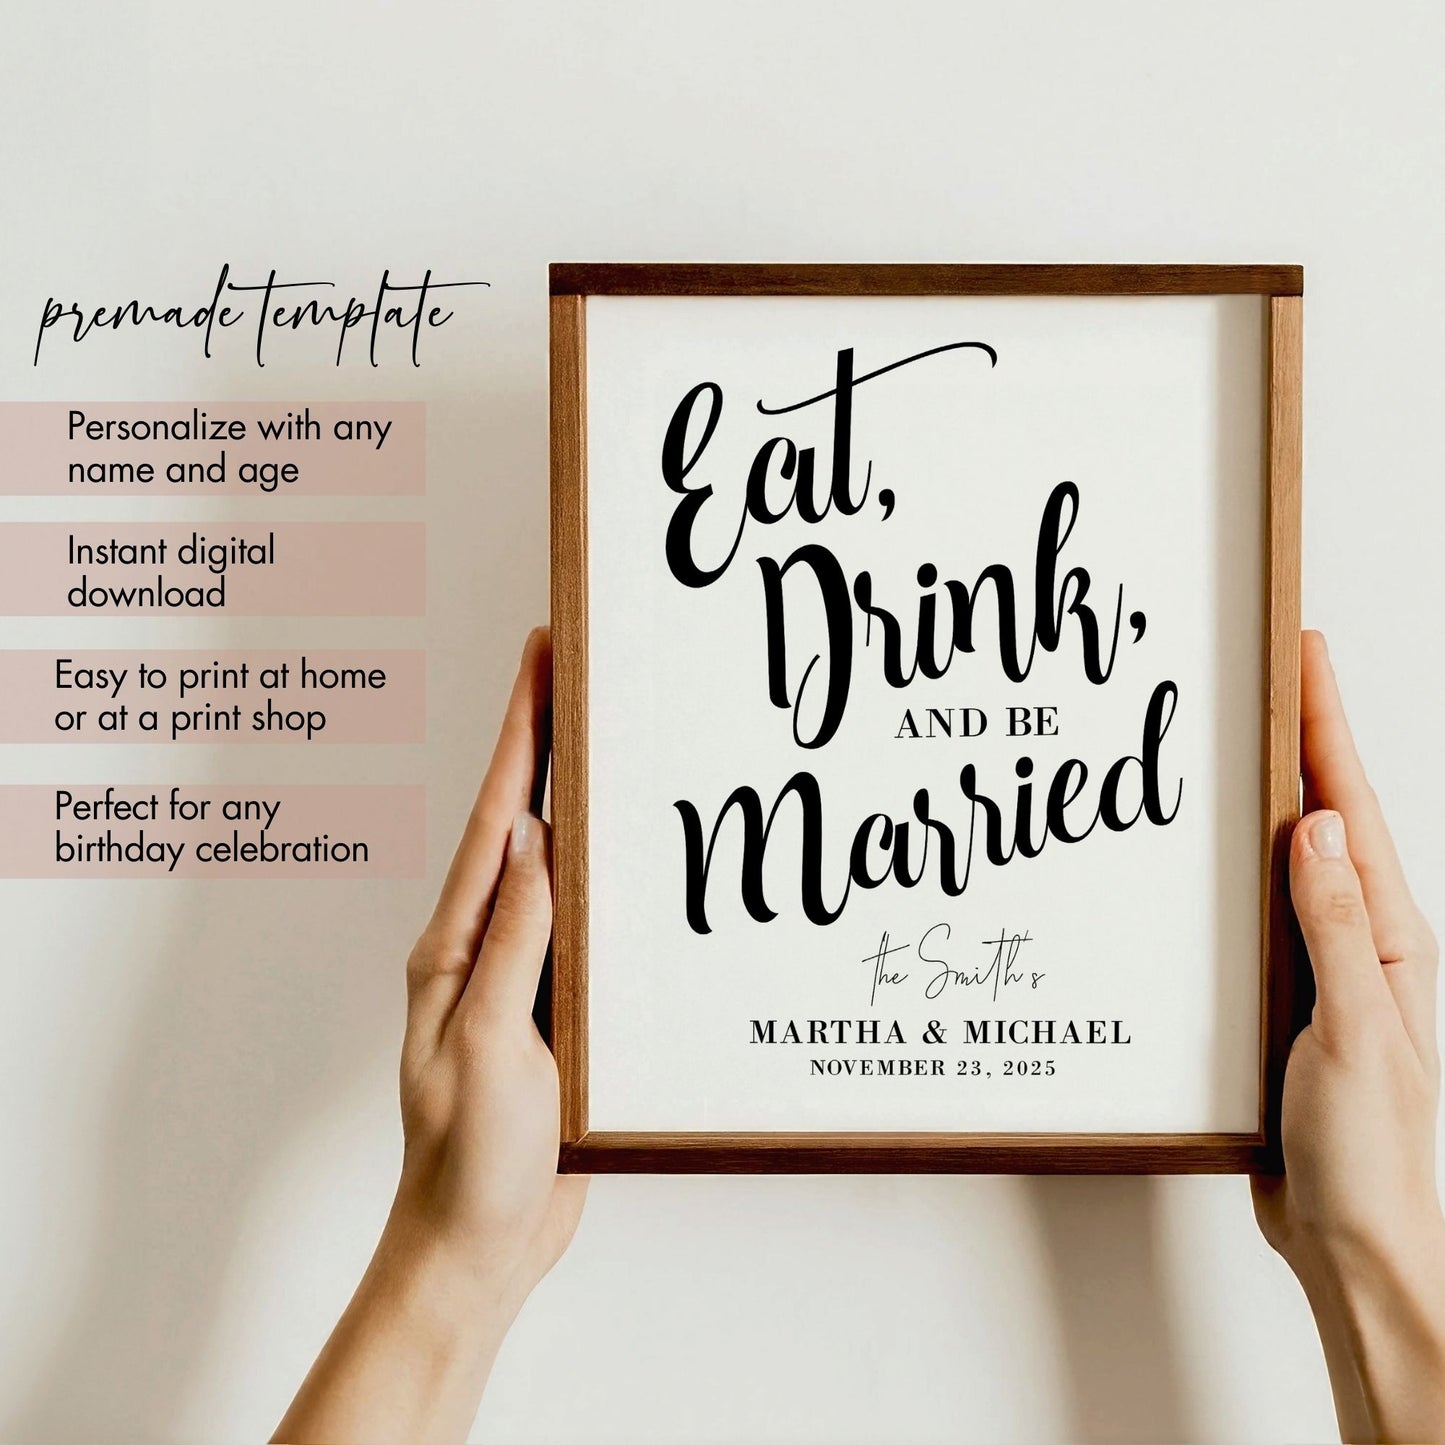 premade template
Personalize with any
name and age
Instant digital
download
Easy to print at home
or at a print shop
Perfect for any
birthday celebration
Eat,
Drink,
AND BE
Married
the Smith's
MARTHA & MICHAEL
NOVEMBER 23, 2025